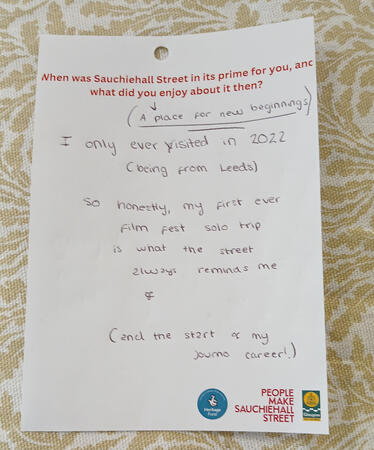 When was Sauchiehall Street in its prime for you, and
what did you enjoy about it then?
(A place for new beginnings)
I only ever visited in 2022
(being from Leeds)
So honestly, my first ever
film fest solo trip
is what the street
always reminds me
of
(and the start of my
journo career!)
Heritage
Fund
PEOPLE
MAKE
SAUCHIEHALL
STREET
Glasgow